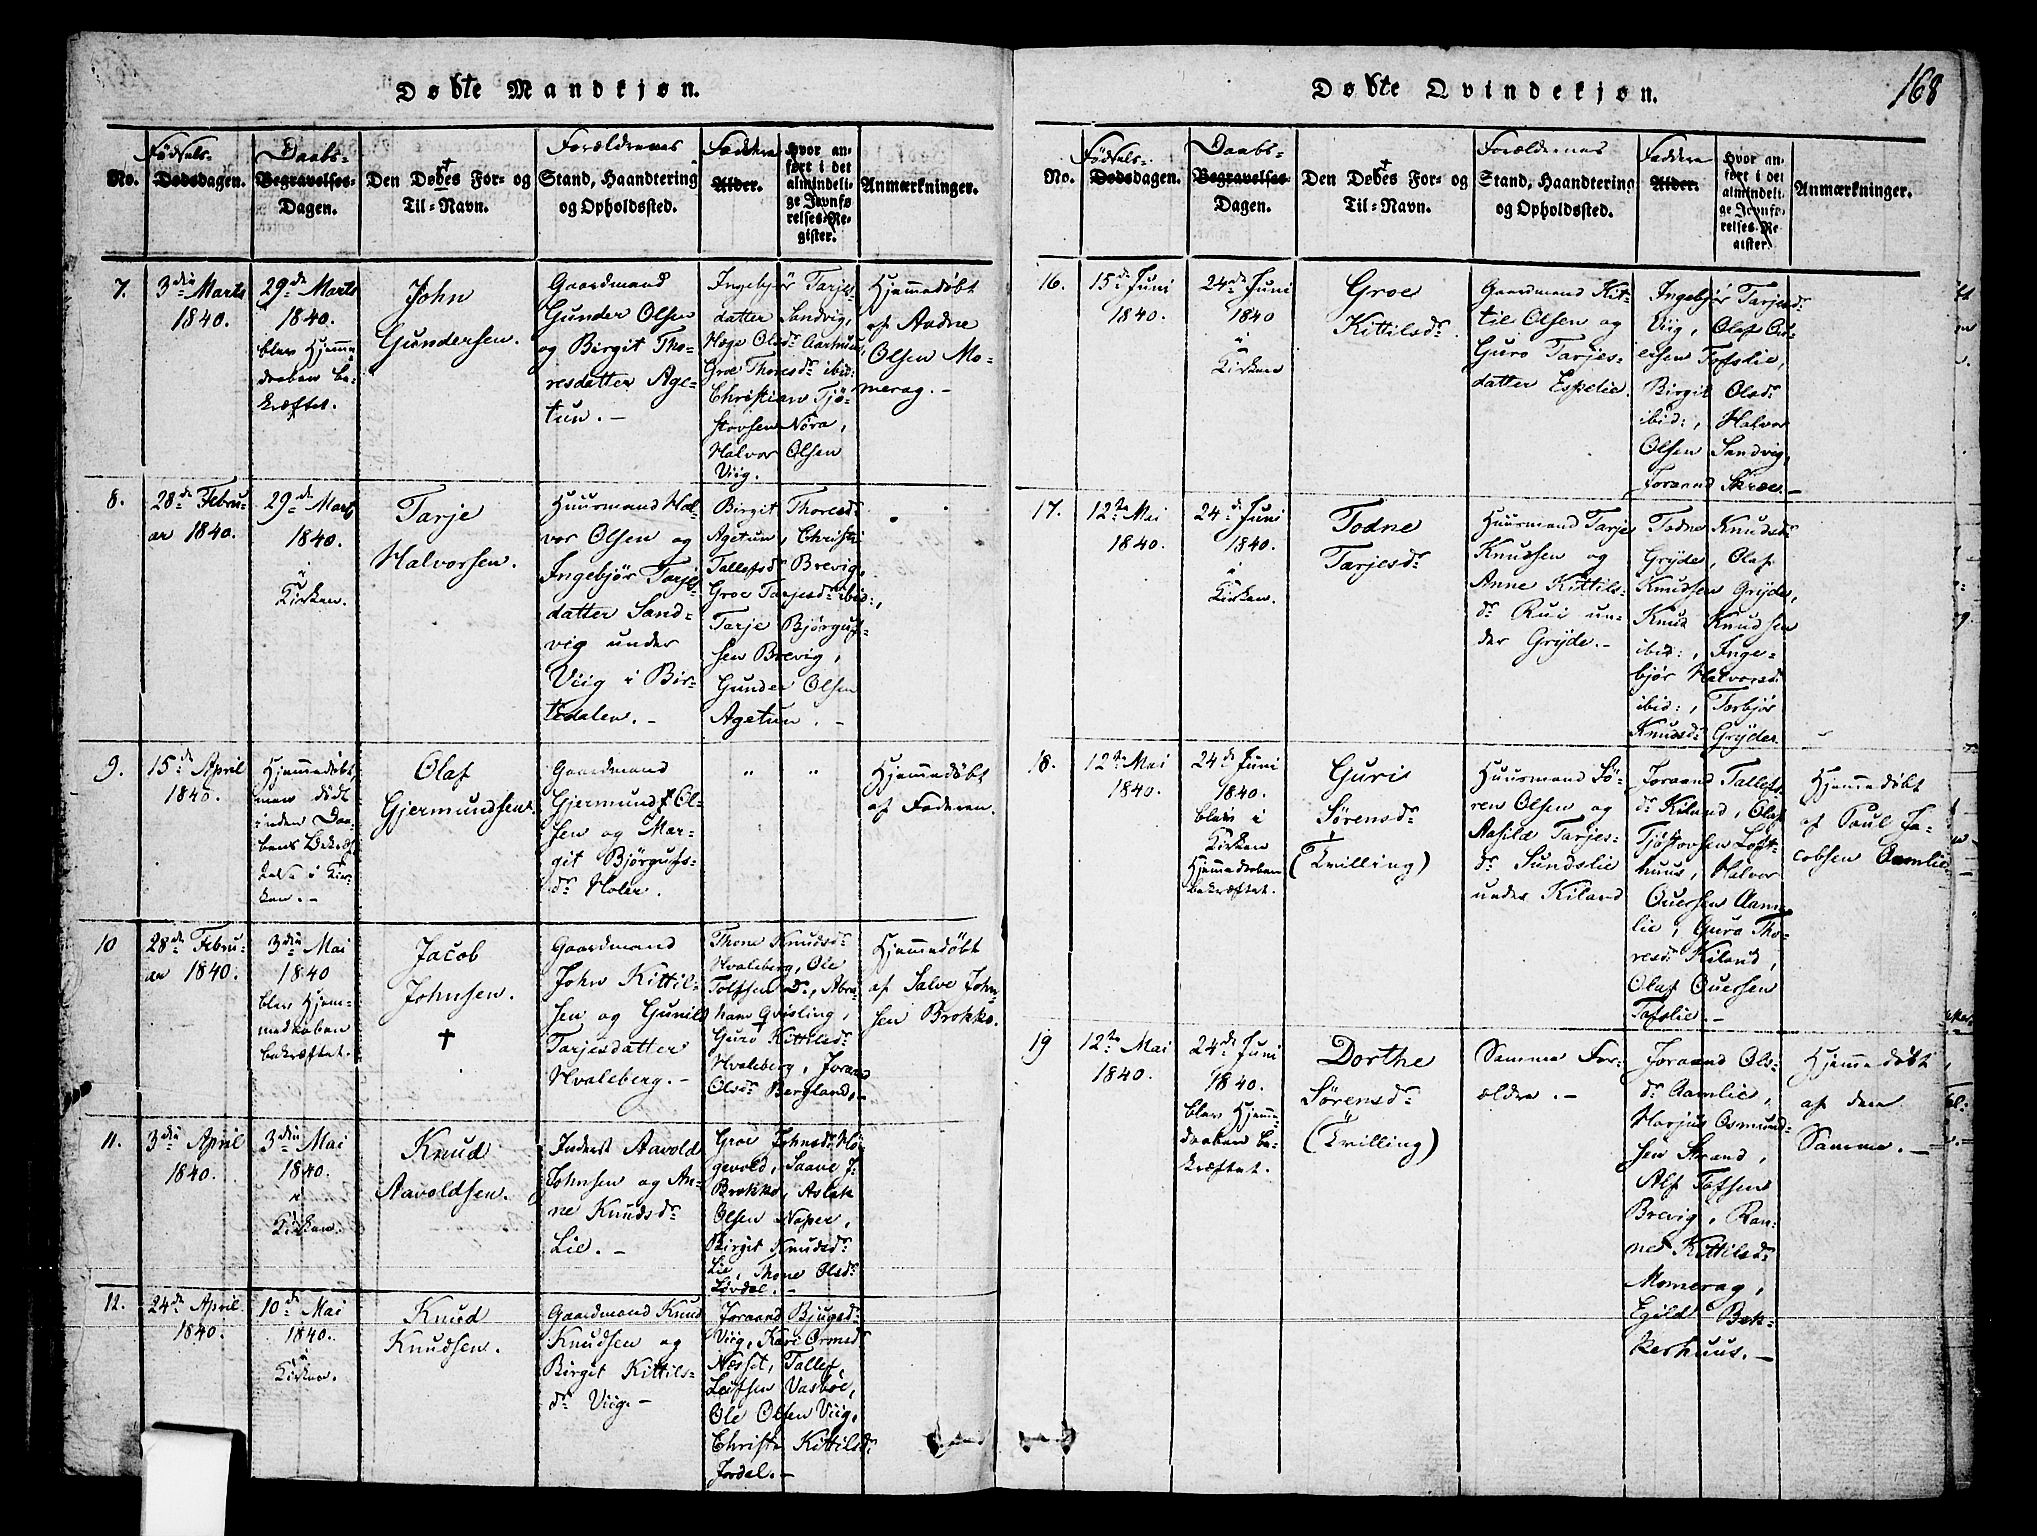 Døbte Mandkjøn.
No.
Fødsels-
Dødsdagen.
Daabs-
Begravelses-
Dagen.
Den Døbtes For- og
Til-Navn.
Forældrenes
Stand, Haandtering
og Opholdssted.
Faddere
Alder.
Hvor an-
ført i det
almindeli-
ge Jevnfø-
relses-Re-
gister.
Anmærkninger.
7.
3die Marts
1840.
29de Marts
1840.
blev Hjemme
daaben be-
kræftet.
John
Gundersen.
Gaardmand
Gunder Olsen
og Birgit Tho-
resdatter Age-
tun. —
Ingebjör Tarjes-
datter Sandvig,
Hæge Olsdr Aarhus,
Groe Thoresdr ibid:
Christian Tjö-
stovsen Nöra,
Halvor Olsen
Viig.
Hjemmedøbt
af Aadne
Olsen Mo-
merag. —
8.
28de Febru-
ar 1840.
29de Marts
1840.
i
Kirken.
Tarje
Halvorsen.
Huusmand Hal-
vor Olsen og
Ingebjør Tarjes
datter Sand-
vig under
Viig i Bir-
tedalen. —
Birgit Thoresdr
Agetun, Christi
Tallefsdr Brevig,
Groe Tarjesdr ibid:,
Tarje Bjørguf-
sen Brevig,
Gunder Olsen
Agetun. —
9.
15de April
1840.
Hjemmedøbt,
men död
inden Daa-
bens Bekræf-
telse i Kir-
ken. —
Olaf
Gjermundsen.
Gaardmand
Gjermund Ol-
sen og Mar-
git Bjørgufs-
dr Holer.
" "
Hjemmedøbt
af Faderen.
10
28de Febru-
ar 1840.
3die Mai
1840
blev Hjem-
medaaben
bekræftet.
Jacob
Johnsen.
†
Gaardmand
John Kittil-
sen og Gunild
Tarjesdatter
Hvaleberg. —
Thone Knudsdr
Hvaleberg, Ole
Tolfsen, Abra-
ham Qvisling,
Guro Kittilsdr
Hvaleberg, Joraand
Olsdr Bergland. —
Hjemmedøbt
af Salve John-
sen Brokke.
11.
3die April
1840.
3die Mai
1840.
i
Kirken.
Knud
Aavoldsen.
Inderst Aavold
Johnsen og An-
ne Knudsdr
Lie. —
Groe Johnsdr Hö-
gevold, Saave J.
Brokke, Aslak
Olsen Naper,
Birgit Knudsdr
Lie, Thone Olsdr
Lövdal. —
12.
24de April
1840.
10de Mai
1840.
i
Kirken.
Knud
Knudsen.
Gaardmand Knud
Knudsen og
Birgit Kittils-
dr Viig. —
Joraand Bjugsdr
Viig, Kari Ormsdr
Næsset, Tallef
Leifsen Vasböe,
Ole Olsen Viig,
Christi Kittilsdr
Jordal. —
Døbte Qvindekjøn.
168
No.
Fødsels-
Dødsdagen.
Daabs-
Begravelses-
Dagen.
Den Døbtes For- og
Til-Navn.
Forældrenes
Stand, Haandtering
og Opholdssted.
Faddere
Alder.
Hvor an-
ført i det
almindeli-
ge Jevnfø-
relses-Re-
gister.
Anmærkninger.
16.
15de Juni
1840.
24de Juni
1840
i
Kirken
Groe
Kittilsdr
Gaardmand Kit-
til Olsen og
Guro Tarjes-
datter Espelie.
Ingebjør Tarjesdr
Viig, Olaf Ou-
ersen Tofslie,
Birgit Olsdr
ibid:, Halvor
Olsen Sandvig,
Joraand Skree. —
17.
12te Mai
1840.
24de Juni
1840.
i
Kirken.
Todne
Tarjesdr
Huusmand Tarje
Knudsen og
Anne Kittils-
dr Rui un-
der Gryde. —
Todne Knudsdr
Gryde, Olaf
Knudsen Gryde,
Knud Knudsen
ibid:, Inge-
bjør Halvorsdr
ibid:, Torbjør
Knudsdr Gryder
18.
12te Mai
1840.
24de Juni
1840.
blev i
Kirken
Hjemmedaaben
bekræftet.
Guri
Sørensdr
(Tvilling)
Huusmand Sö-
ren Olsen og
Aasild Tarjes-
dr Sundslie
under Kiland
Joraand Tallefs-
dr Kiland, Olaf
Tjøstovsen Loft-
huus, Halvor
Ouersen Aam-
lie, Guro Tho-
resdr Kiland,
Olaf Ouersen
Tofslie. —
Hjemmedøbt
af Paul Ja-
cobsen Aamlie
19
12te Mai
1840.
24de Juni
1840.
blev Hjemme
daaben be-
kræftet.
Dorthe
Sørensdr
(Tvilling)
Samme For-
ældre. —
Joraand Ols-
dr Aamlie,
Harjus Osmund-
sen Strand,
Alf Tofsen
Brevig, Ran-
nei Kittilsdr
Momerag,
Egild Bak-
kerhuus. —
Hjemmedøbt
af den
Samme. —